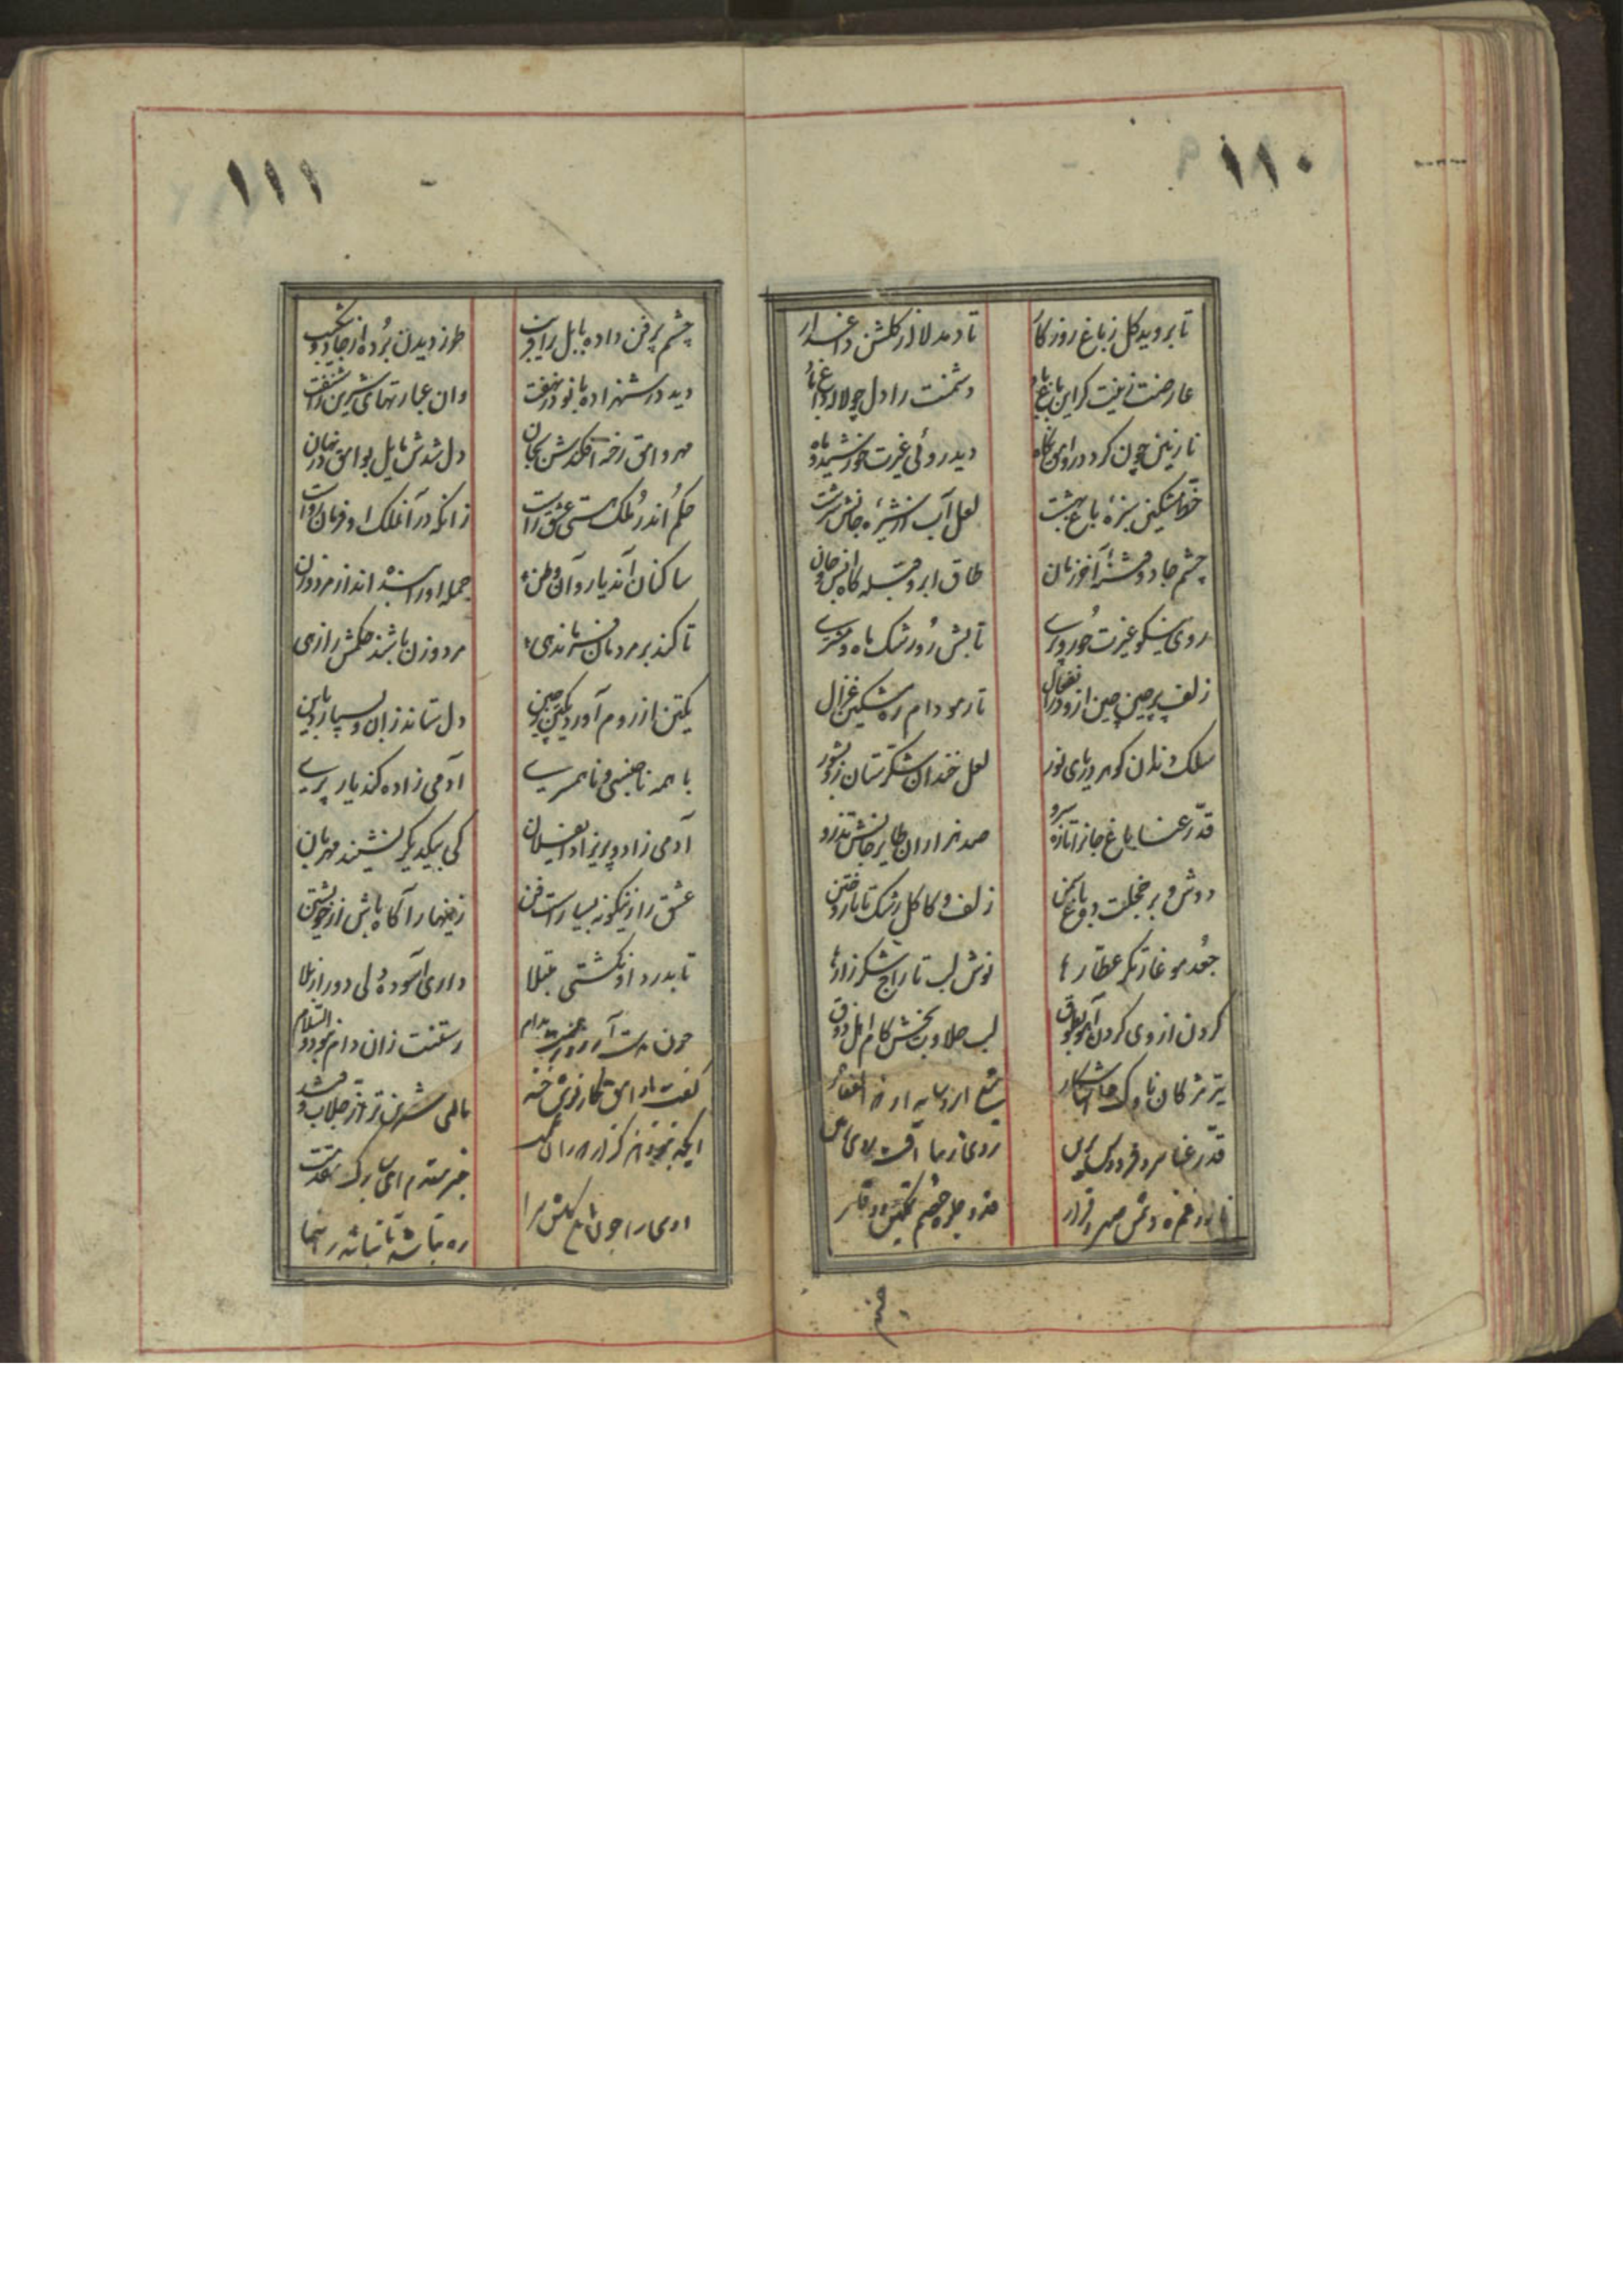 ۱۱۰
تا بروید گل ز باغ روزگار تا دمد لاله ز گلشن داغدار
عارضت زینت گر این باغ باد دشمنت را دل چو لاله داغ باد
نازنین چون کرد در وامق نگاه دید روئی غیرت خورشید و ماه
خط مشکین سبزهٔ باغ بهشت لعل آب از شیرهٔ جانش سرشت
چشم جادو فتنهٔ آخر زمان طاق ابرو قبله گاه انس و جان
روی نیکو غیرت حور و پری تابش رو رشک ماه و مشتری
زلف پر چین چین ازو در انفعال تار مو دام ره مشکین غزال
سلک دندان گوهر دریای نور لعل خندان شکرستان زو بشور
قد رعنا باغ جانرا تازه سرو صد هزاران طایر جانش تذرو
دوش و بر خجلت ده باغ سمن زلف و کاکل رشک تاتار و ختن
جعد مو غارتگر عطارها نوش لب تاراج شکرزارها
گردن از وی گردن آهو بطوق لب حلاوت بخش کام اهل ذوق
تیر مژگان ناوک جانها شکار
قد رعنا سرو فردوس روی زیبا آفت
غمزه دشمن صبر و قرار جلوه خصم تمکین و وقار
۱۱۱
چشم پر فن داده بابل را فریب طرز دیدن برده از جادو شکیب
دید در شهزاده بانو در نهفت وان عبارتهای شیرین را شنفت
مهر وامق رخنه افکندش بجان دل شدش مایل بوامق در نهان
حکم اندر ملک هستی عشق راست زانکه در آن ملک او فرمان رواست
ساکنان آن دیار و آن وطن جمله او را بنده اند از مرد و زن
تا کند بر مردمان فرماندهی مرد و زن باشند حکمش را رهی
یکتن از روم آورد یکتن ز چین دل ستاند زان و بسپارد باین
با همه ناجنسی و ناهمسری آدمی زاده کند یار پری
آدمی زاد و پریزاد کی بیکدیگر نشینند مهربان
عشق را زینگونه بسیار است فن زینهار آگاه باش از خویشتن
تا بدرد او نگشتی مبتلا داری آسوده دلی دور از بلا
چون بدام رستنت زان دام نبود والسلام
گفت با وامق شیرین تر از جلاب و قند
خیر مقدم ای
چون گلشن سرا ره نما